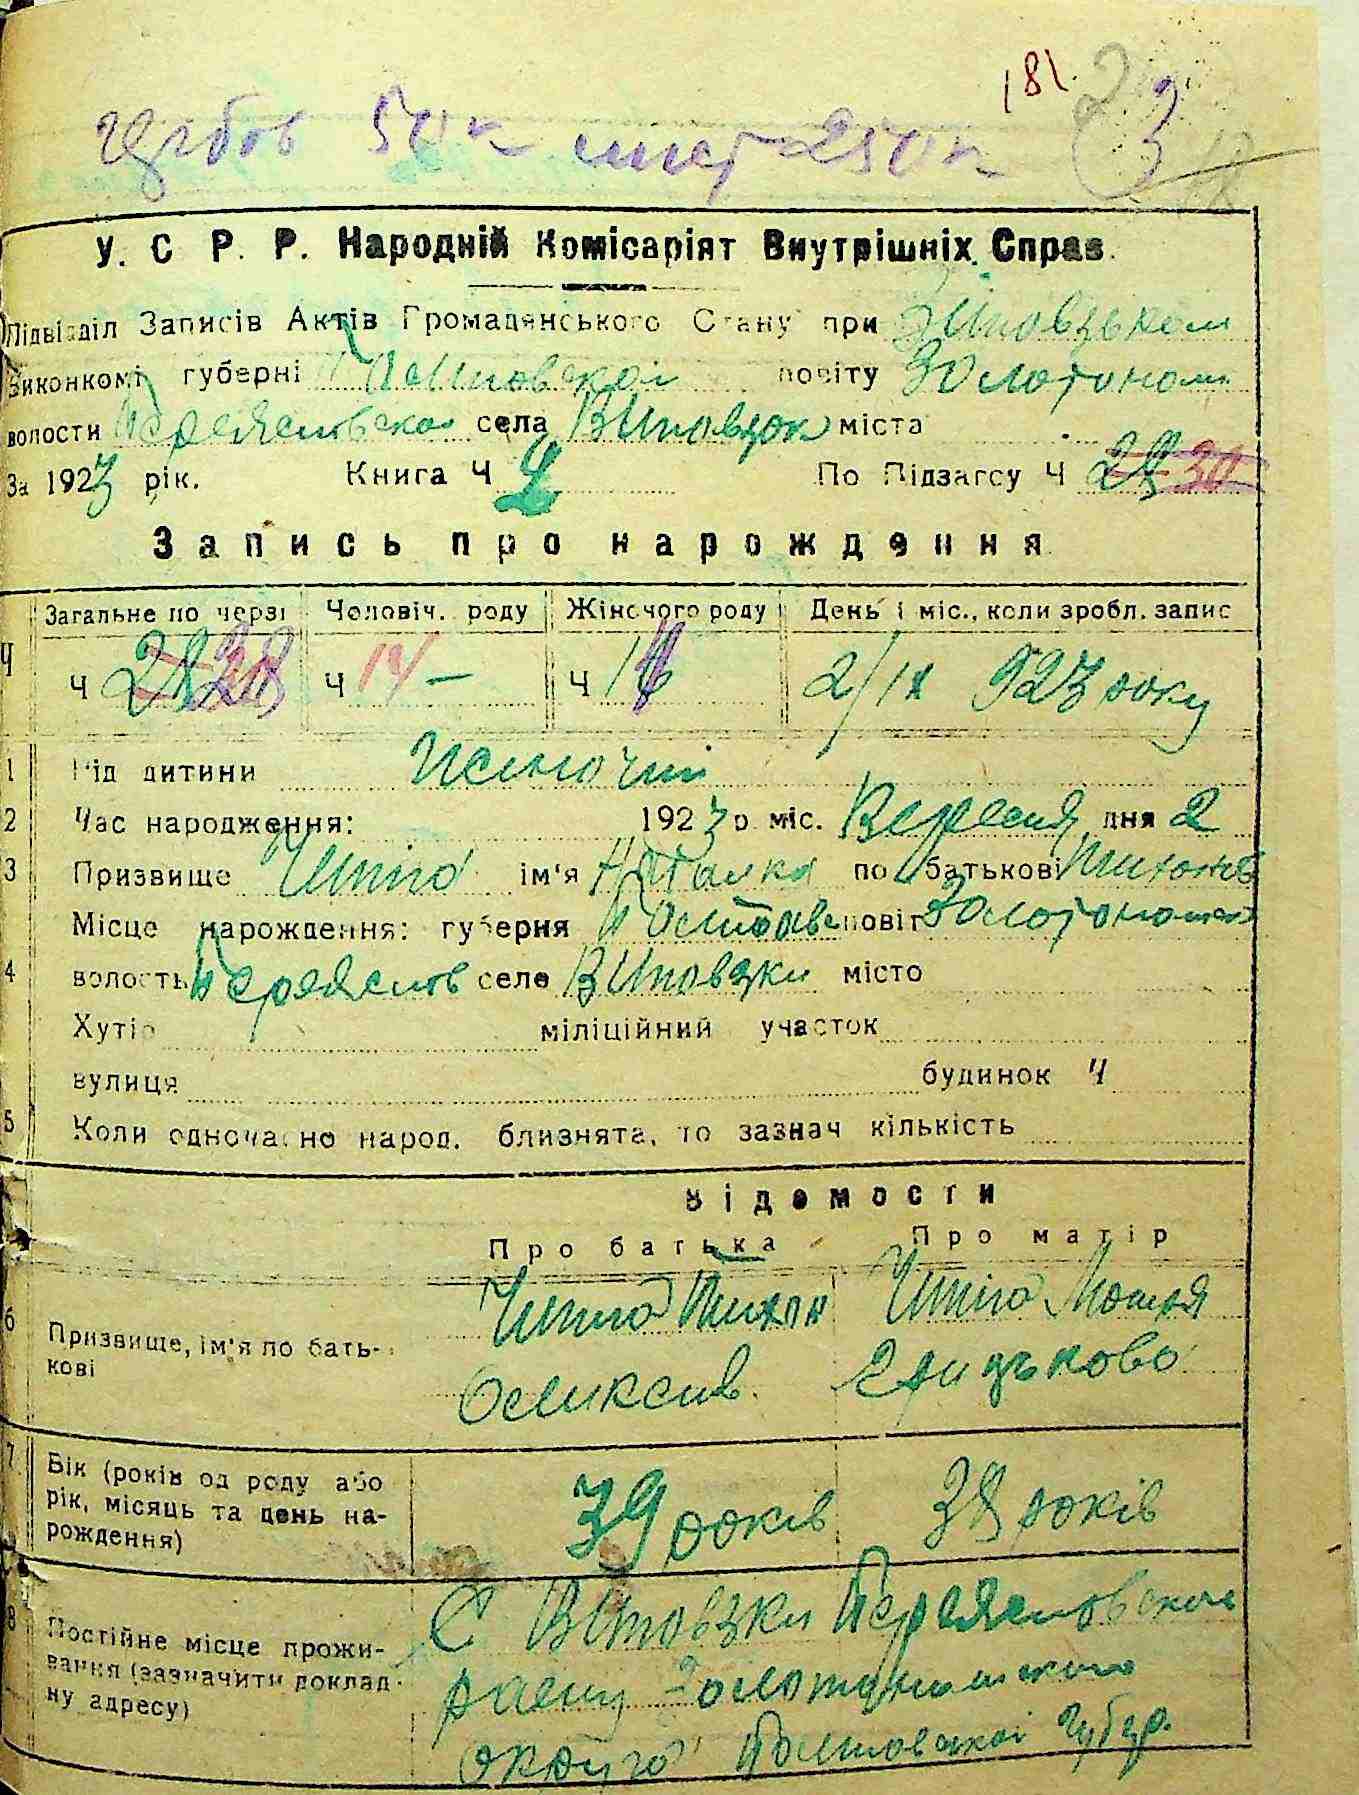 181. 23
гербов 50 к лист 250 к
У. С Р. Р. Народній Комісаріят Внутрішніх Справ.
Підвідділ Записів Актів Громадянського Стану при
Виконкомі губерні Полтовской повіту Золотоном
волости Переяславскої села Віповзок міста
За 1923 рік. Книга Ч 2 По Підзагсу Ч 28 30
Запись про нарождення
Загальне по черзі Чоловіч. роду Жіночого роду День і міс., коли зробл. запис
Ч Ч 28 28 Ч 14 — Ч 2/IX 923 року
1 Рід дитини жіночий
2 Час народження: 1923 р міс. Вересня дня 2
3 Призвище Чміга ім'я Наталка по батькові Тихонів
Місце нарождення: губерня Полтавс повіт Золотонош
4 волость Переяслов село Віповзки місто
Хутір міліційний участок
вулиця будинок Ч
5 Коли одночасно народ. близнята, то зазнач кількість
Відомости
Про батька Про матір
6 Призвище, ім'я по батькові Тихон
Грицькова
7 Вік (років од роду або рік, місяць та день нарождення) 39 років 38 років
8 Постійне місце проживання (зазначити докладну адресу) С Віповзки Переясловского
раену Золотоношского
округа Полтовскої губер.